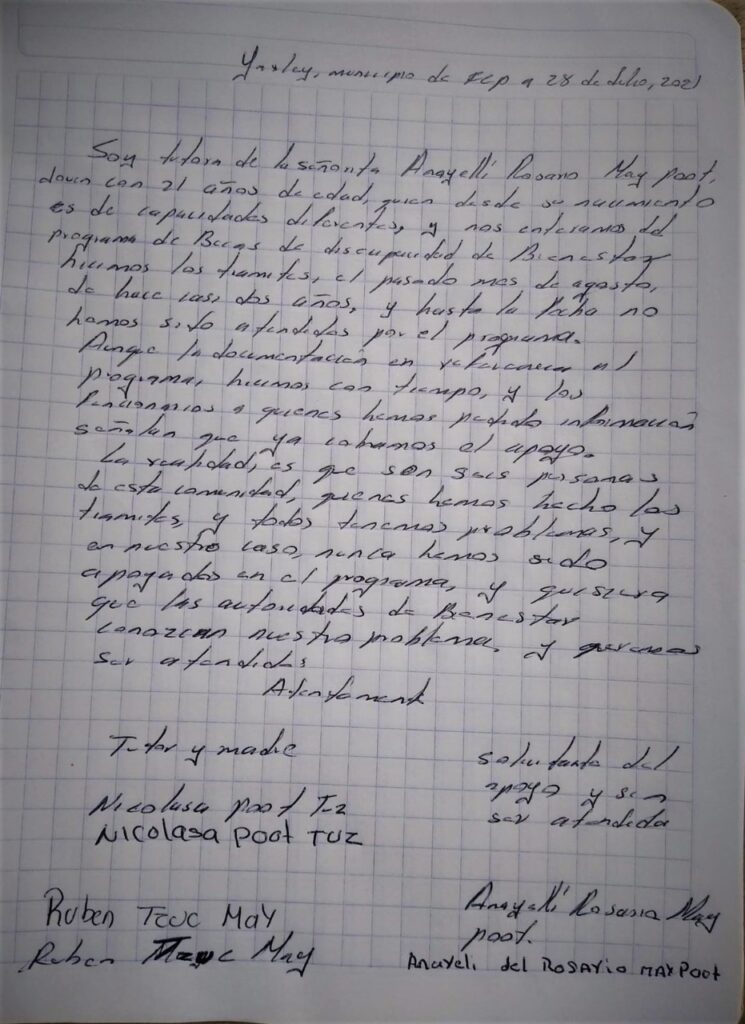 Yaxley, municipio de FCP a 28 de Julio, 2021
Soy tutora de la señorita Anayellí Rosario May poot,
joven con 21 años de edad, quien desde su nacimiento
es de capacidades diferentes, y nos enteramos del
programa de Becas de discapacidad de Bienestar
hicimos los tramites, el pasado mes de agosto,
de hace casi dos años, y hasta la fecha no
hemos sido atendidos por el programa.
Aunqe la documentación en referencia al
programa, hicimos con tiempo, y los
funcionarios a quienes hemos pedido información
señalan que ya cobamos el apoyo.
La realidad, es que son seis personas
de esta comunidad, quienes hemos hecho los
tramites, y todos tenemos problemas, y
en nuestro caso, nunca hemos sido
apoyados en el programa, y quisiera
que las autoridades de Bienestar
conozcan nuestro problema. y queremos
ser atendidos
Atentamente
Tutor y madre
Nicolasa poot Tuz
NICOLASA POOT TUZ
solicitante del
apoyo y sin
ser atendida
Ruben Tzuc May
Ruben Tzuc May
Anayellí Rosario May
poot.
Anayeli del ROSAYIO MAY POOT